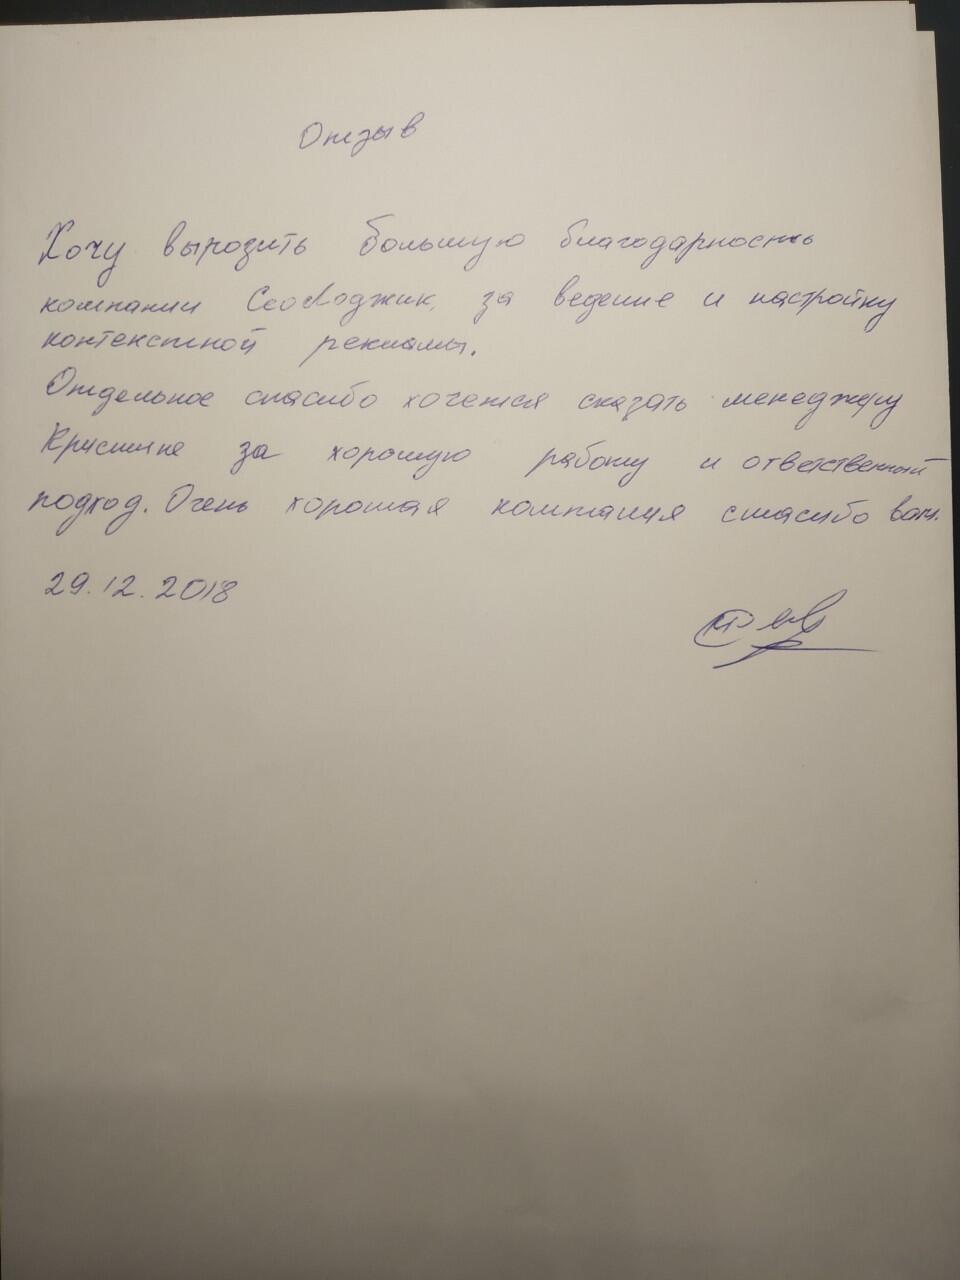 Отзыв
Хочу вырозить большую благодарность
компании СеоЛоджик, за ведение и настройку
контекстной рекламы.
Отдельное спасибо хочется сказать менеджеру
Кристине за хорошую работу и ответственный
подход. Очень хорошая компания спасибо вам.
29.12.2018